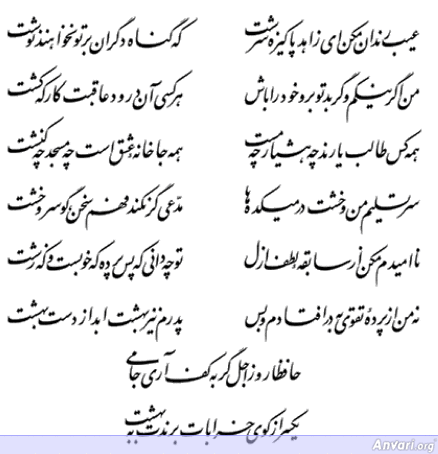 عیب رندان مکن ای زاهد پاکیزه سرشت که گناه دگران بر تو نخواهند نوشت
من اگر نیکم و گر بد تو برو خود را باش هر کسی آن درود عاقبت کار که کشت
همه کس طالب یارند چه هشیار و چه مست همه جا خانهٔ عشق است چه مسجد چه کنشت
سر تسلیم من و خشت در میکده‌ها مدّعی گر نکند فهم سخن گو سر و خشت
ناامیدم مکن از سابقهٔ لطف ازل تو چه دانی که پس پرده که خوبست و که زشت
نه من از پردهٔ تقوی به در افتادم و بس پدرم نیز بهشت ابد از دست بهشت
حافظا روز اجل گر به کف آری جامی
یکسر از کوی خرابات برندت به بهشت
Anvari.org